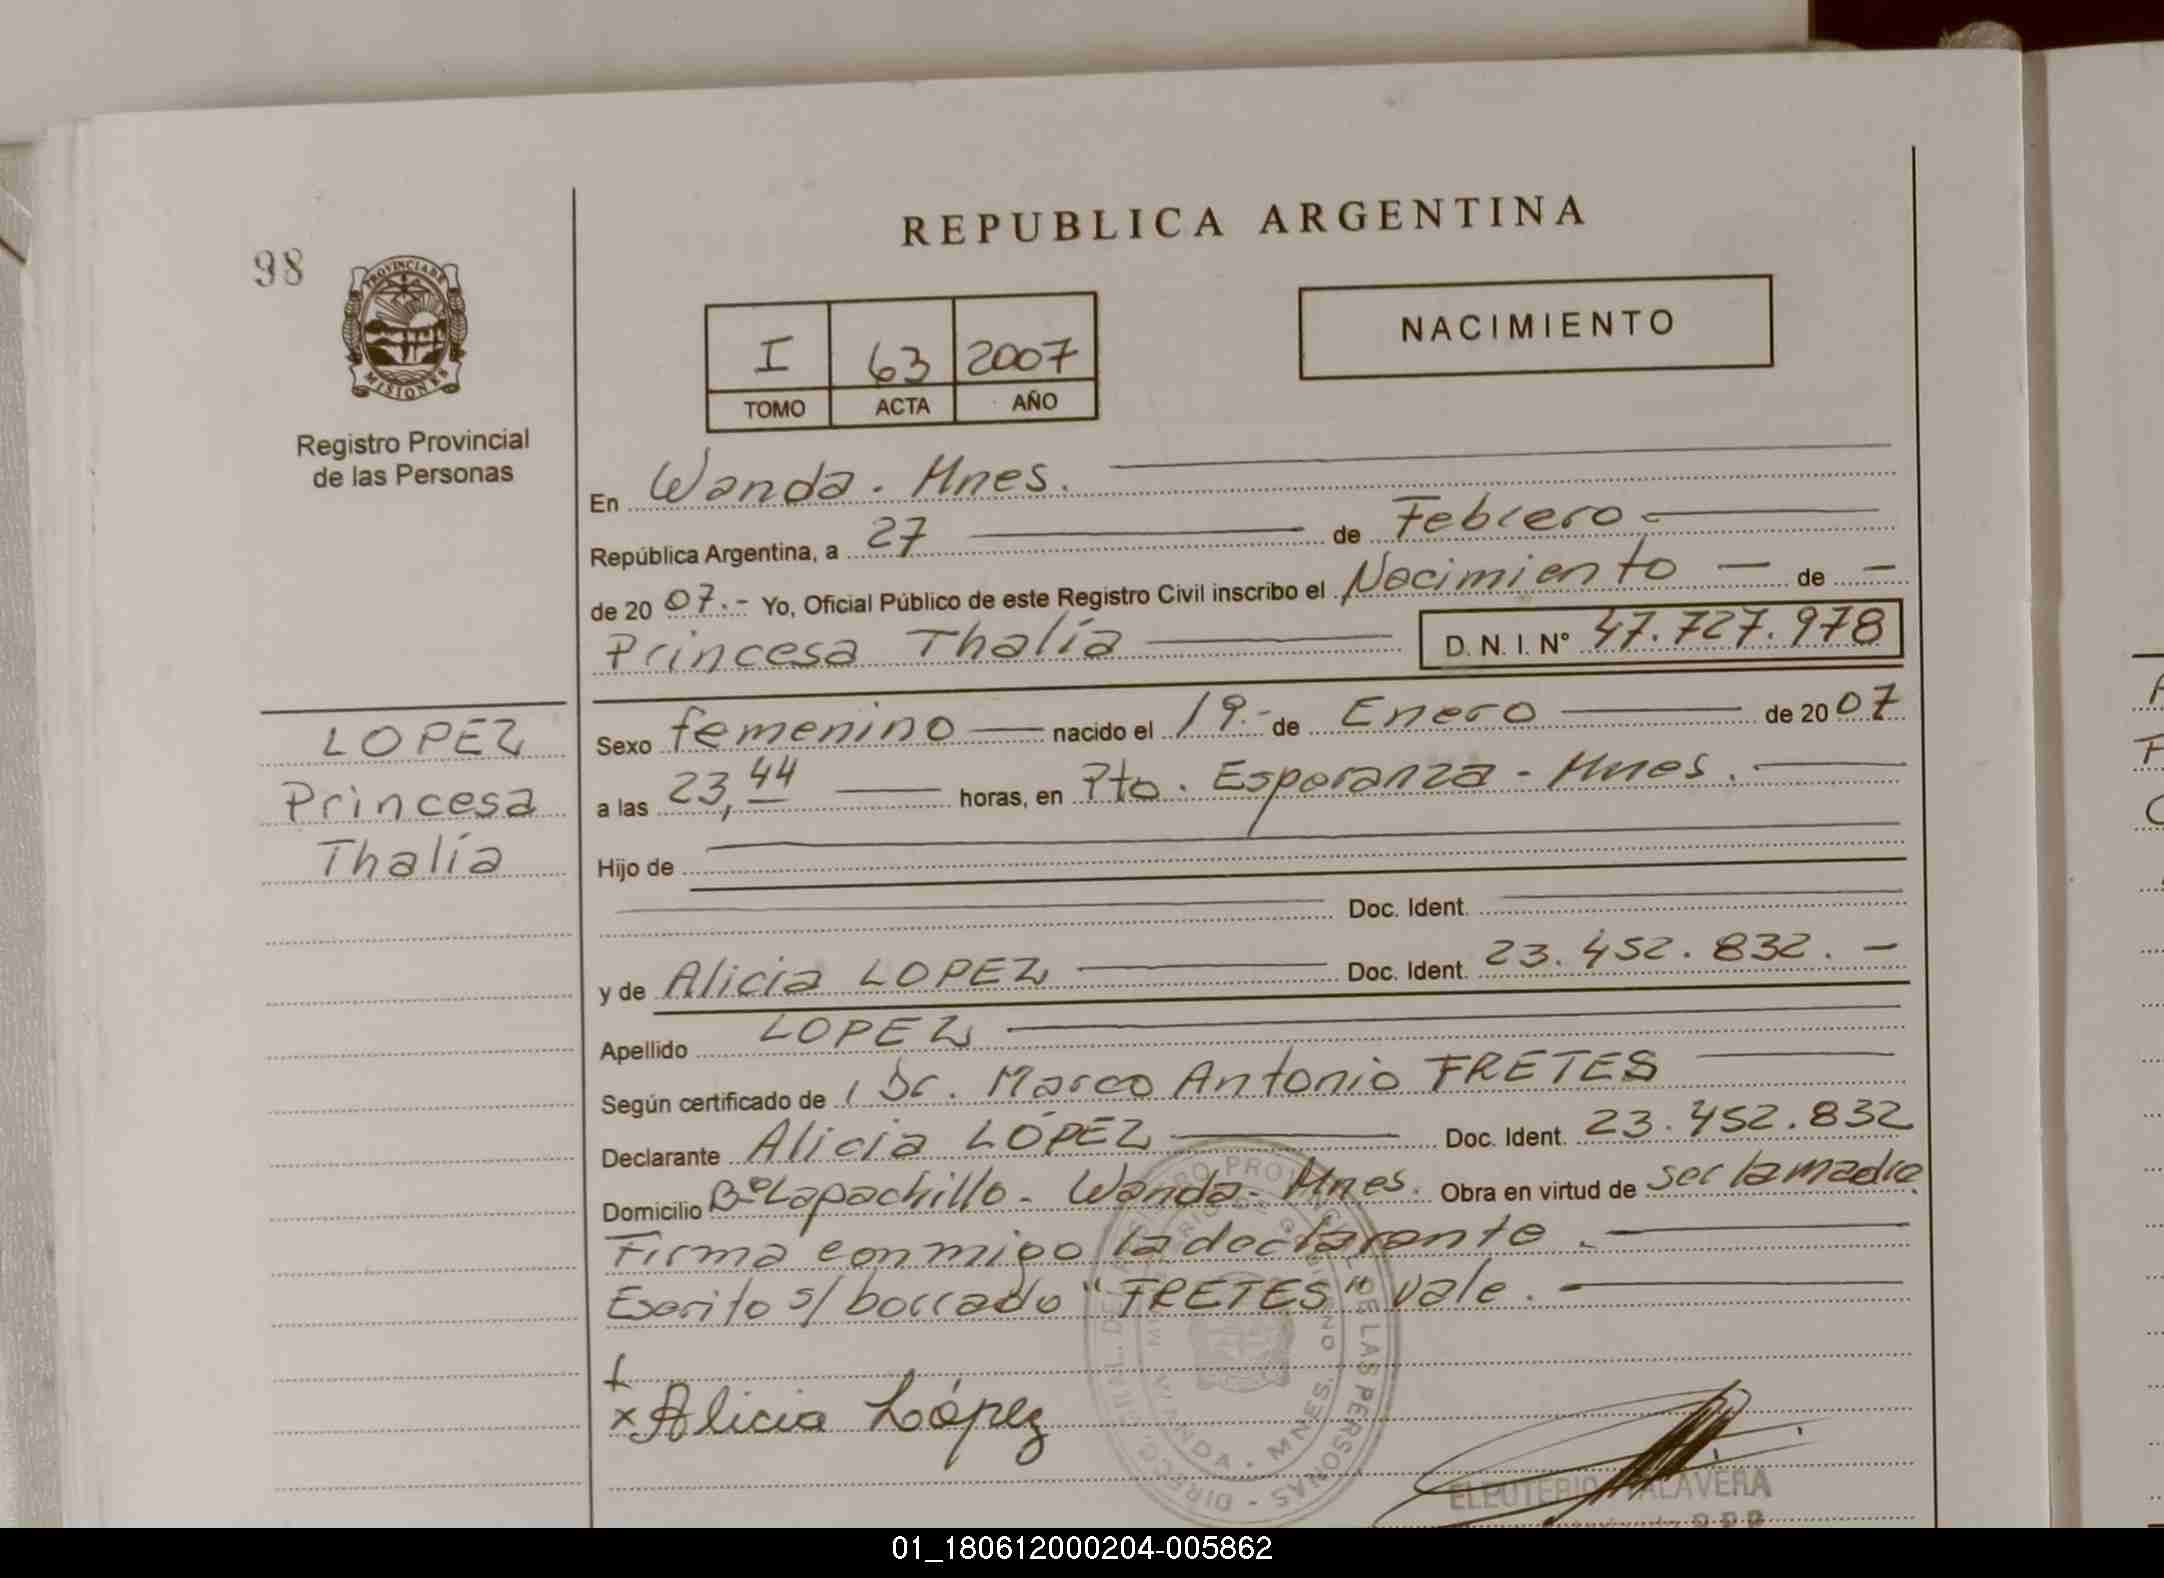 REPUBLICA ARGENTINA
98
PROVINCIA DE
MISIONES
Registro Provincial
de las Personas
I 63 2007
TOMO ACTA AÑO
NACIMIENTO
En Wanda. Mnes.
República Argentina, a 27 de Febrero
de 2007.- Yo, Oficial Público de este Registro Civil inscribo el Nacimiento — de —
Princesa Thalía D. N. I. Nº 47.727.978
LOPEZ
Princesa
Thalía
Sexo femenino nacido el 19.- de Enero de 2007
a las 23,44 horas, en Pto. Esperanza - Mnes.
Hijo de
Doc. Ident.
y de Alicia LOPEZ Doc. Ident. 23.452.832.-
Apellido LOPEZ
Según certificado de Dr. Marco Antonio FRETES
Declarante Alicia LÓPEZ Doc. Ident. 23.452.832
Domicilio Bº Lapachillo - Wanda - Mnes. Obra en virtud de ser la madre.
Firma conmigo la declarante.
Escrito s/ borrado "FRETES" vale.
x Alicia López
ELEUTERIO TALAVERA
WANDA - MNES.
01_180612000204-005862